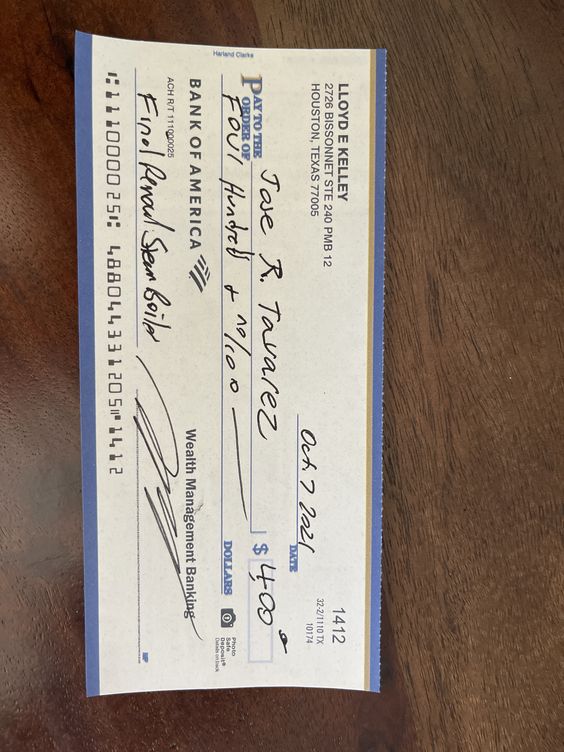 Harland Clarke
LLOYD E KELLEY
2726 BISSONNET STE 240 PMB 12
HOUSTON, TEXAS 77005
1412
32-2/1110 TX
10174
Oct. 7 2021
DATE
PAY TO THE ORDER OF Jose R. Tavarez $ 400
Four Hundred + no/100 DOLLARS
Photo Safe Deposit®
Details on back
BANK OF AMERICA Wealth Management Banking
ACH R/T 111000025
Final Steam Boiler
MP
⑆111000025⑆ 488044331205⑈1412